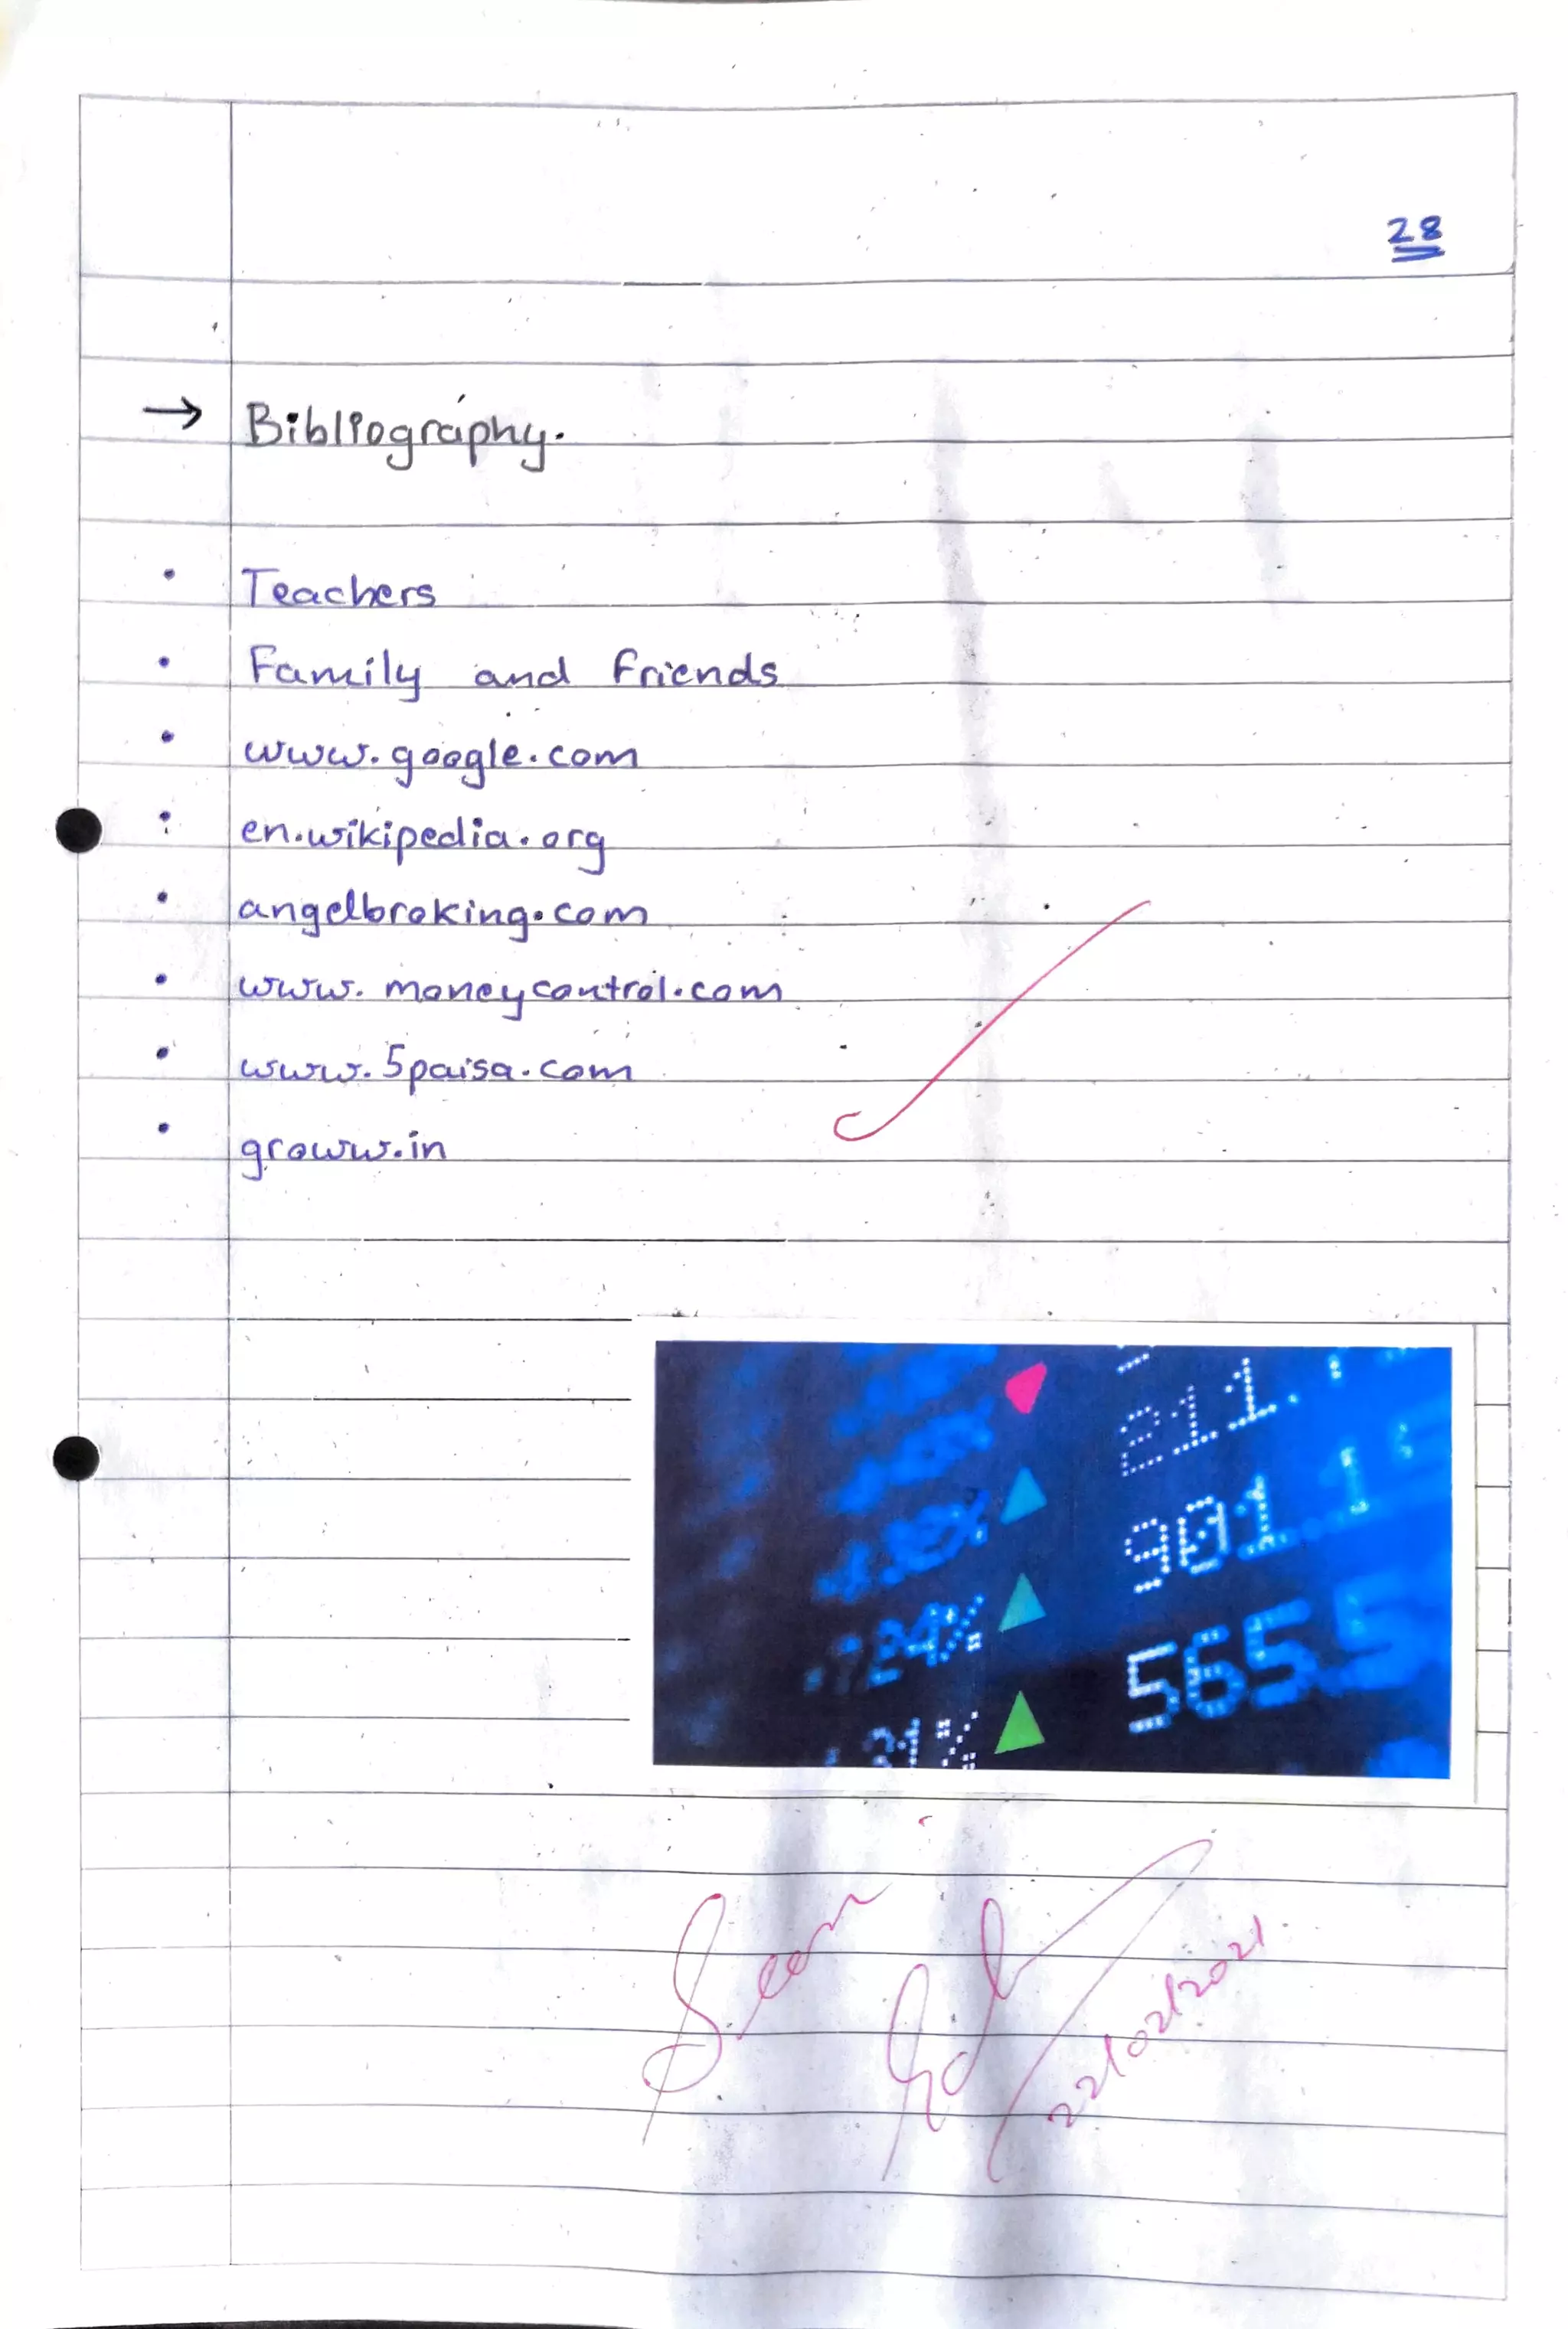 28
→ Bibliography.
• Teachers
• Family and friends
• www.google.com
• en.wikipedia.org
• angelbroking.com
• www.moneycontrol.com
• www.5paisa.com
• groww.in
211.
901.1
565.5
Seen
22/02/2021